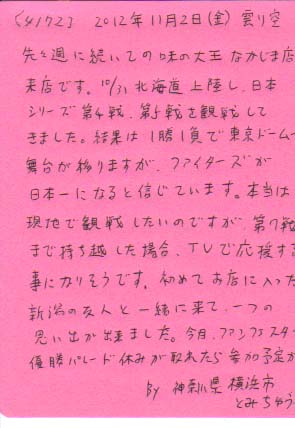 (4172) 2012年11月2日(金) 曇り空
先々週に続いての味の大王 なかじま店
来店です。10/31 北海道上陸し、日本
シリーズ第4戦、第5戦を観戦して
きました。結果は1勝1負で東京ドームへ
舞台が移りますが、ファイターズが
日本一になると信じています。本当は
現地で観戦したいのですが、第7戦
まで持ち越した場合、TVで応援する
事になりそうです。初めてお店に入った
新潟の友人と一緒に来て、一つの
思い出が出来ました。今月、ファンフェスタ
優勝パレード休みが取れたら参加予定
By 神奈川県横浜市
とみちゅう